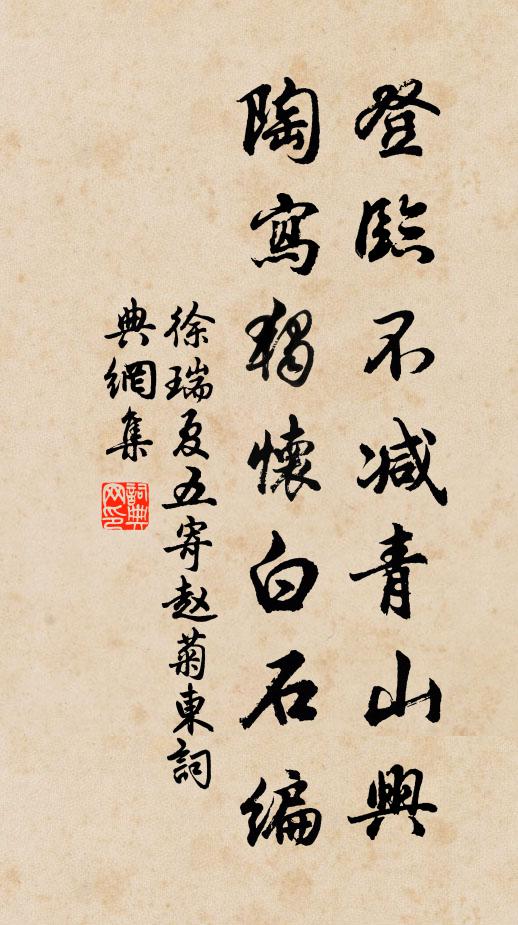 登臨不減青山興
陶寫獨懷白石編
徐瑞夏五寄赵菊東詞
典網集
詞典
网印